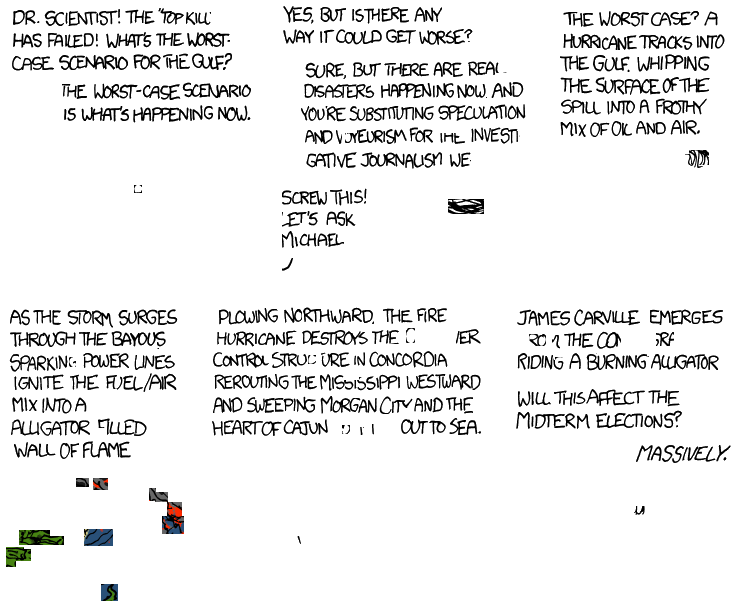 DR. SCIENTIST! THE "TOP KILL"
HAS FAILED! WHAT'S THE WORST-
CASE SCENARIO FOR THE GULF?
THE WORST-CASE SCENARIO
IS WHAT'S HAPPENING NOW.
YES, BUT IS THERE ANY
WAY IT COULD GET WORSE?
SURE, BUT THERE ARE REAL
DISASTERS HAPPENING NOW. AND
YOU'RE SUBSTITUTING SPECULATION
AND VOYEURISM FOR THE INVESTI-
GATIVE JOURNALISM WE
SCREW THIS!
LET'S ASK
MICHAEL
THE WORST CASE? A
HURRICANE TRACKS INTO
THE GULF, WHIPPING
THE SURFACE OF THE
SPILL INTO A FROTHY
MIX OF OIL AND AIR.
AS THE STORM SURGES
THROUGH THE BAYOUS
SPARKING POWER LINES
IGNITE THE FUEL/AIR
MIX INTO A
ALLIGATOR FILLED
WALL OF FLAME
PLOWING NORTHWARD, THE FIRE
HURRICANE DESTROYS THE
CONTROL STRUCTURE IN CONCORDIA
REROUTING THE MISSISSIPPI WESTWARD
AND SWEEPING MORGAN CITY AND THE
HEART OF CAJUN OUT TO SEA.
JAMES CARVILLE EMERGES
THE
RIDING A BURNING ALLIGATOR
WILL THIS AFFECT THE
MIDTERM ELECTIONS?
MASSIVELY.